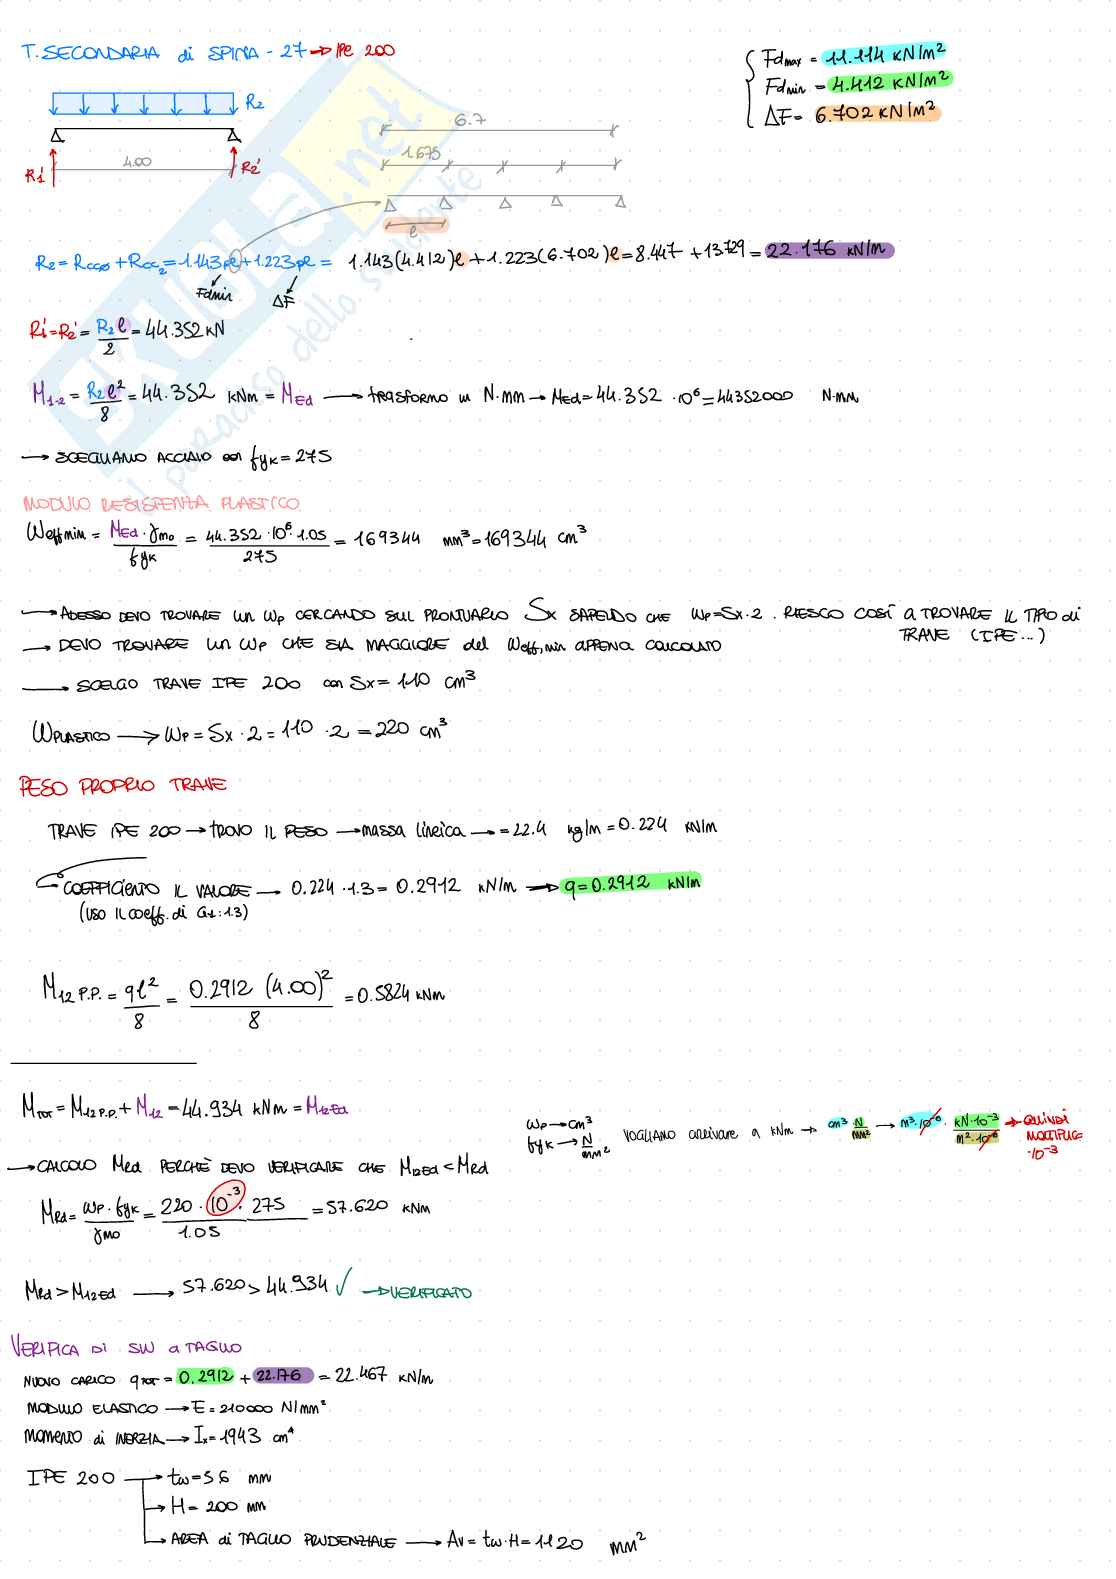 T. SECONDARIA di SPINA - 27 → IPE 200
Fdmax = 11.114 KN/m²
Fdmin = 4.412 KN/m²
ΔF = 6.702 KN/m²
R2
6.7
1.675
4.00
R1'
R2'
l
R2 = Rcc∞ + Rcc2 = 1.143pl + 1.223pl = 1.143(4.412)l + 1.223(6.702)l = 8.447 + 13.729 = 22.176 KN/m
Fdmin
ΔF
R1' = R2' = R2 l / 2 = 44.352 KN
M1-2 = R2 l² / 8 = 44.352 KNm = MEd → TRASFORMO in N·mm → MEd = 44.352 · 10⁶ = 44352000 N·mm
→ SCEGLIAMO ACCIAIO con fyk = 275
MODULO RESISTENZA PLASTICO
Weff min = MEd · γm0 / fyk = 44.352 · 10⁶ · 1.05 / 275 = 169344 mm³ = 169344 cm³
→ ADESSO DEVO TROVARE un Wp CERCANDO SUL PRONTUARIO Sx SAPENDO CHE Wp = Sx · 2. RIESCO COSÌ A TROVARE IL TIPO di
TRAVE (IPE...)
→ DEVO TROVARE un Wp CHE SIA MAGGIORE del Weff,min APPENA CALCOLATO
→ SCELGO TRAVE IPE 200 con Sx = 110 cm³
WPLASTICO → Wp = Sx · 2 = 110 · 2 = 220 cm³
PESO PROPRIO TRAVE
TRAVE IPE 200 → TROVO IL PESO → massa lineica → = 22.4 kg/m = 0.224 KN/m
COEFFICIENTO IL VALORE → 0.224 · 1.3 = 0.2912 KN/m → q = 0.2912 KN/m
(USO IL coeff. di G1: 1.3)
M12 P.P. = ql² / 8 = 0.2912 (4.00)² / 8 = 0.5824 KNm
MTOT = M12 P.P. + M12 = 44.934 KNm = M12Ed
Wp → cm³
fyk → N/mm²
VOGLIAMO arrivare a KNm → cm³ N/mm² → m³·10⁻⁶ · KN·10⁻³ / m²·10⁻⁶ → QUINDI
MOLTIPLIC
·10⁻³
→ CALCOLO MRd PERCHÈ DEVO VERIFICARE CHE M12Ed < MRd
MRd = Wp · fyk / γm0 = 220 · 10⁻³ · 275 / 1.05 = 57.620 KNm
MRd > M12Ed → 57.620 > 44.934 ✓ → VERIFICATO
VERIFICA Di SLU a TAGLIO
NUOVO CARICO qTOT = 0.2912 + 22.176 = 22.467 KN/m
MODULO ELASTICO → E = 210000 N/mm²
MOMENTO di INERZIA → Ix = 1943 cm⁴
IPE 200 → tw = 5.6 mm
→ H = 200 mm
→ AREA di TAGLIO PRUDENZIALE → Av = tw·H = 1120 mm²
SKUOLA.net
il paradiso dello studente